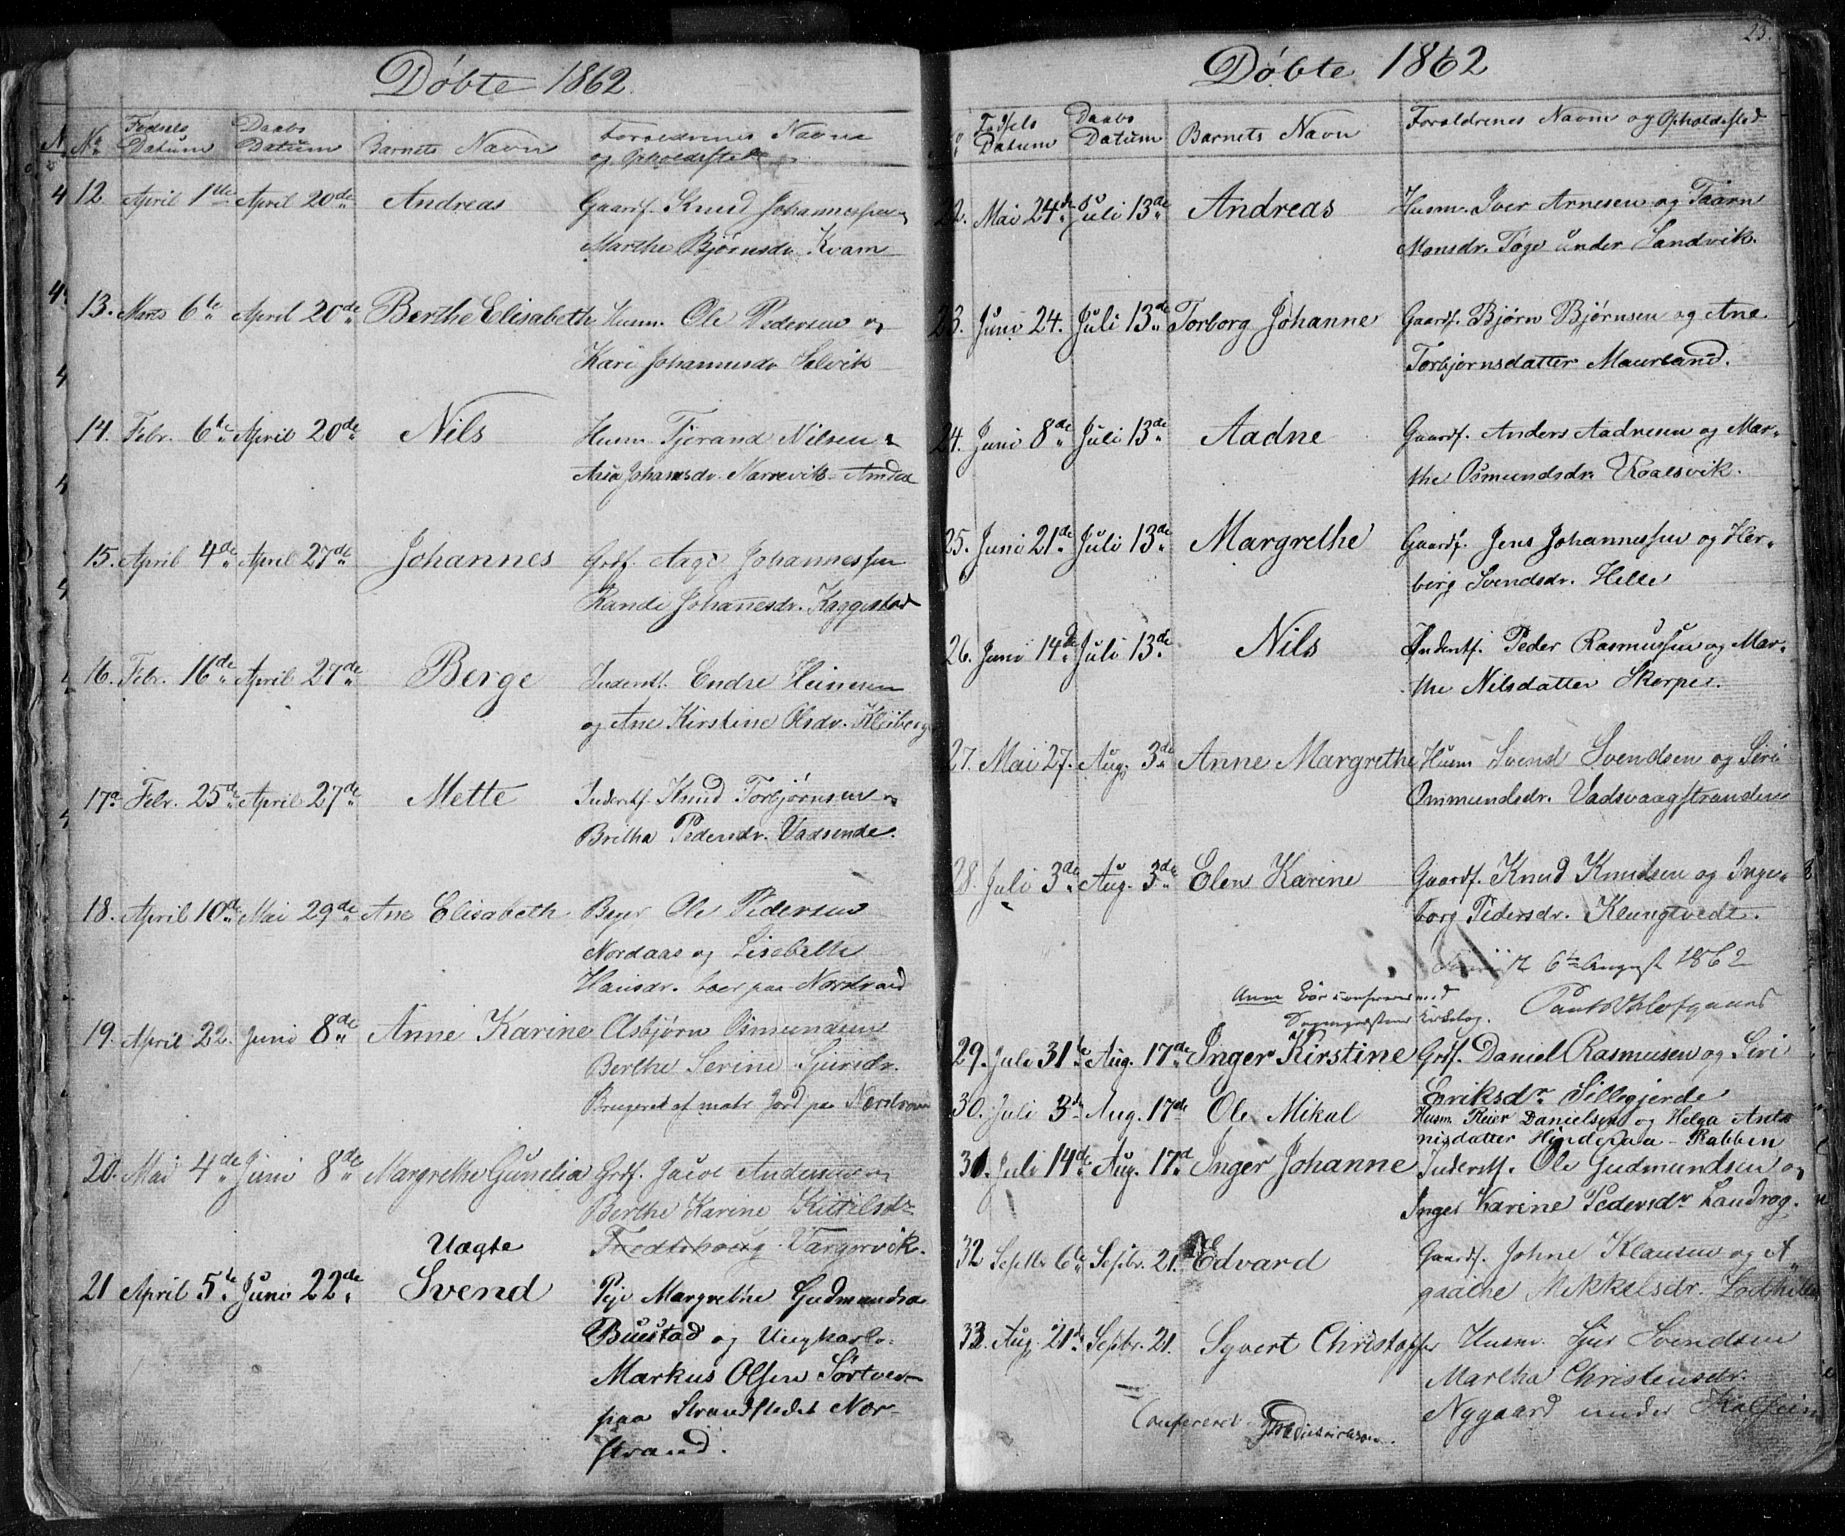 Døbte 1862.
No Fødsels Datum Daabs Datum Barnets Navn Forældrenes Navne og Opholdssted
12 April 1de April 20de Andreas Gaardf. Knud Johannessen
Marthe Bjørnsdr Kvam
13. Marts 6te April 20de Berthe Elisabeth Husm. Ole Pedersen og
Kari Johannesdr Solvik
14. Febr. 6te April 20de Nils Husm Tjerand Nilsen
Johansdr. Narrevik
15. April 4de April 27de Johannes Grdf. Aage Johannessen
Randi Johanesdr. Kaggestad
16. Febr. 16de April 27de Berge Inderstf. Endre Heinesen
og Ane Kirstine Olsdr. Kleiberg
17. Febr. 25de April 27de Mette Inderstf. Knud Torbjørnsen
Britha Pedersdr. Vadsende.
18. April 10de Mai 29de Ane Elisabeth Ole Pedersen
Nordaas og Lisebeth
Hansdr. boer paa Norstrand
19. April 22. Juni 8de Anne Karine Asbjørn Osmundsen
Berthe Serine Sjursdr.
Brugeret af matr Jord paa
20. Mai 4de Juni 8de Margrethe Gunelia Grdf. Jacob Andersen
Berthe Karine Kittilsdr
Vargervik.
Uægte
21 April 5te Juni 22de Svend Pige Margrethe Gudmundsd
Buestad og Ungkarl
Markus Olsen Sørtved
paa Strandstedet Nor-
strand.
25.
Døbte 1862
Fødsels Datum Daabs Datum Barnets Navn Forældrenes Navne og Opholdssted
22. Mai 24de Juli 13de Andreas Husm. Iver Arnesen og Taarn
Monsdr. Tøge under Sandvik.
23. Juni 24. Juli 13de Torborg Johanne Gaardf. Bjørn Bjørnsen og Ane
Torbjørnsdatter Maurland.
24. Juni 8de Juli 13de Aadne Gaardf. Anders Aadnesen og Mar-
the Osmundsdr. Roalsvik.
25. Juni 21de Juli 13de Margrethe Gaardf. Jens Johannessen og Her-
berg Svendsdr. Helle
26. Juni 14de Juli 13de Nils Inderstf. Peder Rasmussen og Mar-
the Nilsdatter Skorpe.
27. Mai 27. Aug. 3de Anne Margrethe Husm Svend Svendsen og Siri
Ommundsdr. Vadsvaagstranden
28. Juli 3de Aug. 3de Elen Karine Gaardf. Knud Knudsen og Inge-
borg Pedersdr. Klungtvedt.
6te August 1862
29. Juli 31te Aug. 17de Inger Kirstine Grdf. Daniel Rasmusen og Siri
Eriksdr Silligjerde
30. Juli 3de Aug. 17de Ole Mikal Husm. Reier Danielsen og Helga Anto
nisdatter Hinderaa-Rabben
31. Juli 14de Aug. 17de Inger Johanne Inderstf. Ole Gudmundsen og
Inger Karine Pedersdr Landrog.
32 Septbr 6te Septbr. 21. Edvard Gaardf. Johne Klausen og A
gaathe Mikkelsdr.
33. Aug. 21de Septbr. 21. Syvert Christoffer Husm. Sjur Svendsen
Martha Christensdr.
Nygaard under
Confereret